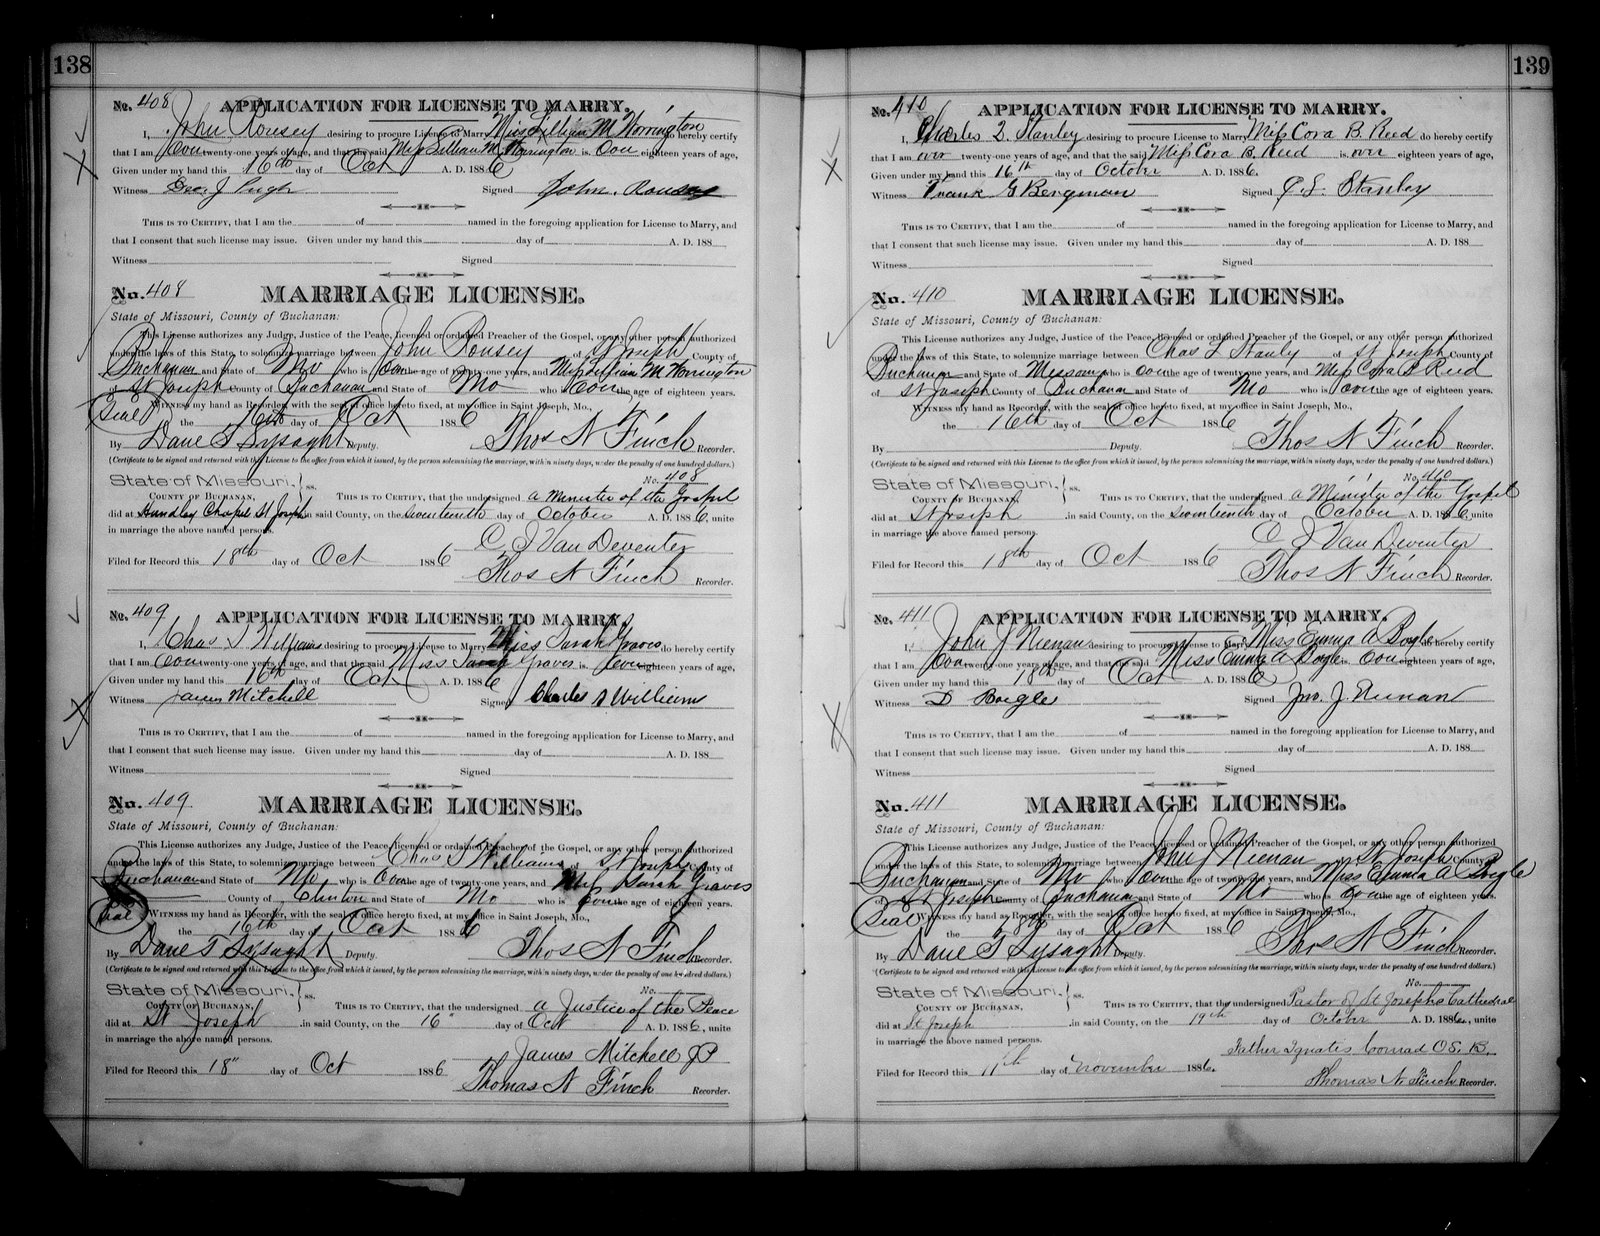 138
No. 408 APPLICATION FOR LICENSE TO MARRY.
I, John Rousey desiring to procure License to Marry Miss Lillian M Worrington do hereby certify
that I am Over twenty-one years of age, and that the said Miss Lillian M. Worrington is Over eighteen years of age,
Given under my hand this 16th day of Oct A. D. 1886
Witness Geo. J Pugh Signed John. Rousey
THIS IS TO CERTIFY, that I am the of named in the foregoing application for License to Marry, and
that I consent that such license may issue. Given under my hand this day of A. D. 188
Witness Signed
No. 408 MARRIAGE LICENSE.
State of Missouri, County of Buchanan:
This License authorizes any Judge, Justice of the Peace, licensed or ordained Preacher of the Gospel, or any other person authorized
under the laws of this State, to solemnize marriage between John Rousey of St Joseph County of
Buchanan and State of Mo who is Over the age of twenty-one years, and Miss Lillian M Worrington
of St Joseph County of Buchanan and State of Mo who is Over the age of eighteen years.
Seal WITNESS my hand as Recorder, with the seal of office hereto fixed, at my office in Saint Joseph, Mo.,
the 16th day of Oct 1886
By Dave T Lysaght Deputy. Thos N Finch Recorder.
(Certificate to be signed and returned with this License to the office from which it issued, by the person solemnizing the marriage, within ninety days, under the penalty of one hundred dollars.)
State of Missouri, ss. No. 408
COUNTY OF BUCHANAN, THIS IS TO CERTIFY, that the undersigned a Minister of the Gospel
did at Hundley Chapel St Joseph in said County, on the seventeenth day of October A. D. 1886, unite
in marriage the above named persons.
C J Van Deventer
Filed for Record this 18th day of Oct 1886
Thos N Finch Recorder.
No. 409 APPLICATION FOR LICENSE TO MARRY.
I, Chas S Williams desiring to procure License to Marry Miss Sarah Graves do hereby certify
that I am Over twenty-one years of age, and that the said Miss Sarah Graves is Over eighteen years of age,
Given under my hand this 16th day of Oct A. D. 1886
Witness James Mitchell Signed Charles S Williams
THIS IS TO CERTIFY, that I am the of named in the foregoing application for License to Marry, and
that I consent that such license may issue. Given under my hand this day of A. D. 188
Witness Signed
No. 409 MARRIAGE LICENSE.
State of Missouri, County of Buchanan:
This License authorizes any Judge, Justice of the Peace, licensed or ordained Preacher of the Gospel, or any other person authorized
under the laws of this State, to solemnize marriage between Chas S Williams of St Joseph County of
Buchanan and State of Mo who is Over the age of twenty-one years, and Miss Sarah Graves
County of Clinton and State of Mo who is Over the age of eighteen years.
Seal WITNESS my hand as Recorder, with the seal of office hereto fixed, at my office in Saint Joseph, Mo.,
the 16th day of Oct 1886
By Dave T Lysaght Deputy. Thos N Finch Recorder.
(Certificate to be signed and returned with this License to the office from which it issued, by the person solemnizing the marriage, within ninety days, under the penalty of one hundred dollars.)
State of Missouri, ss. No.
COUNTY OF BUCHANAN, THIS IS TO CERTIFY, that the undersigned a Justice of the Peace
did at St Joseph in said County, on the 16" day of Oct A. D. 1886, unite
in marriage the above named persons.
James Mitchell JP
Filed for Record this 18" day of Oct 1886
Thomas N Finch Recorder.
139
No. 410 APPLICATION FOR LICENSE TO MARRY.
I, Charles L. Stanley desiring to procure License to Marry Miss Cora B. Reed do hereby certify
that I am over twenty-one years of age, and that the said Miss Cora B. Reed is over eighteen years of age,
Given under my hand this 16th day of October A. D. 1886.
Witness Frank G Bergman Signed C. L. Stanley
THIS IS TO CERTIFY, that I am the of named in the foregoing application for License to Marry, and
that I consent that such license may issue. Given under my hand this day of A. D. 188
Witness Signed
No. 410 MARRIAGE LICENSE.
State of Missouri, County of Buchanan:
This License authorizes any Judge, Justice of the Peace, licensed or ordained Preacher of the Gospel, or any other person authorized
under the laws of this State, to solemnize marriage between Chas L Stanly of St Joseph County of
Buchanan and State of Missouri who is over the age of twenty-one years, and Miss Cora B Reed
of St Joseph County of Buchanan and State of Mo who is over the age of eighteen years.
WITNESS my hand as Recorder, with the seal of office hereto fixed, at my office in Saint Joseph, Mo.,
the 16th day of Oct 1886
By Deputy. Thos N Finch Recorder.
(Certificate to be signed and returned with this License to the office from which it issued, by the person solemnizing the marriage, within ninety days, under the penalty of one hundred dollars.)
State of Missouri, ss. No. 410
COUNTY OF BUCHANAN, THIS IS TO CERTIFY, that the undersigned a Minister of the Gospel
did at St Joseph in said County, on the seventeenth day of October A. D. 1886, unite
in marriage the above named persons.
C J Van Deventer
Filed for Record this 18th day of Oct 1886
Thos N Finch Recorder.
No. 411 APPLICATION FOR LICENSE TO MARRY.
I, John J Neenan desiring to procure License to Marry Miss Emma A Bogle do hereby certify
that I am Over twenty-one years of age, and that the said Miss Emma A Bogle is Over eighteen years of age,
Given under my hand this 18th day of Oct A. D. 1886
Witness D Bogle Signed Jno. J. Neenan
THIS IS TO CERTIFY, that I am the of named in the foregoing application for License to Marry, and
that I consent that such license may issue. Given under my hand this day of A. D. 188
Witness Signed
No. 411 MARRIAGE LICENSE.
State of Missouri, County of Buchanan:
This License authorizes any Judge, Justice of the Peace, licensed or ordained Preacher of the Gospel, or any other person authorized
under the laws of this State, to solemnize marriage between John J Neenan St Joseph County of
Buchanan and State of Mo who is Over the age of twenty-one years, and Miss Emma A Bogle
of St Joseph County of Buchanan and State of Mo who is Over the age of eighteen years.
Seal WITNESS my hand as Recorder, with the seal of office hereto fixed, at my office in Saint Joseph, Mo.,
the 18th day of Oct 1886
By Dave T Lysaght Deputy. Thos N Finch Recorder.
(Certificate to be signed and returned with this License to the office from which it issued, by the person solemnizing the marriage, within ninety days, under the penalty of one hundred dollars.)
State of Missouri, ss. No.
COUNTY OF BUCHANAN, THIS IS TO CERTIFY, that the undersigned Pastor of St Josephs Cathedral
did at St Joseph in said County, on the 19th day of October A. D. 1886, unite
in marriage the above named persons.
Father Ignatis Conrad O.S.B.
Filed for Record this 11th day of November 1886.
Thomas N. Finch Recorder.